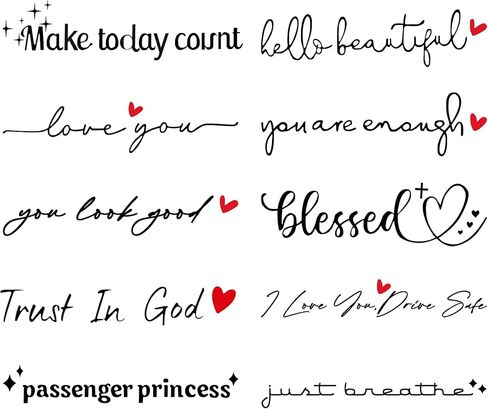 Make today count
hello beautiful
love you
you are enough
you look good
blessed
Trust In God
I Love You, Drive Safe
passenger princess
just breathe